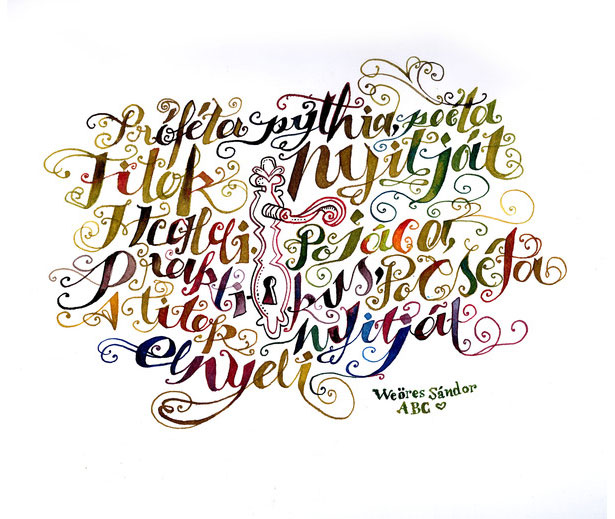 Próféta pythia, poéta
Titok nyitját
Megleli. Pojáca,
Praktikus, Pocséta
A titok nyitját
elnyeli
Weöres Sándor
ABC ♡